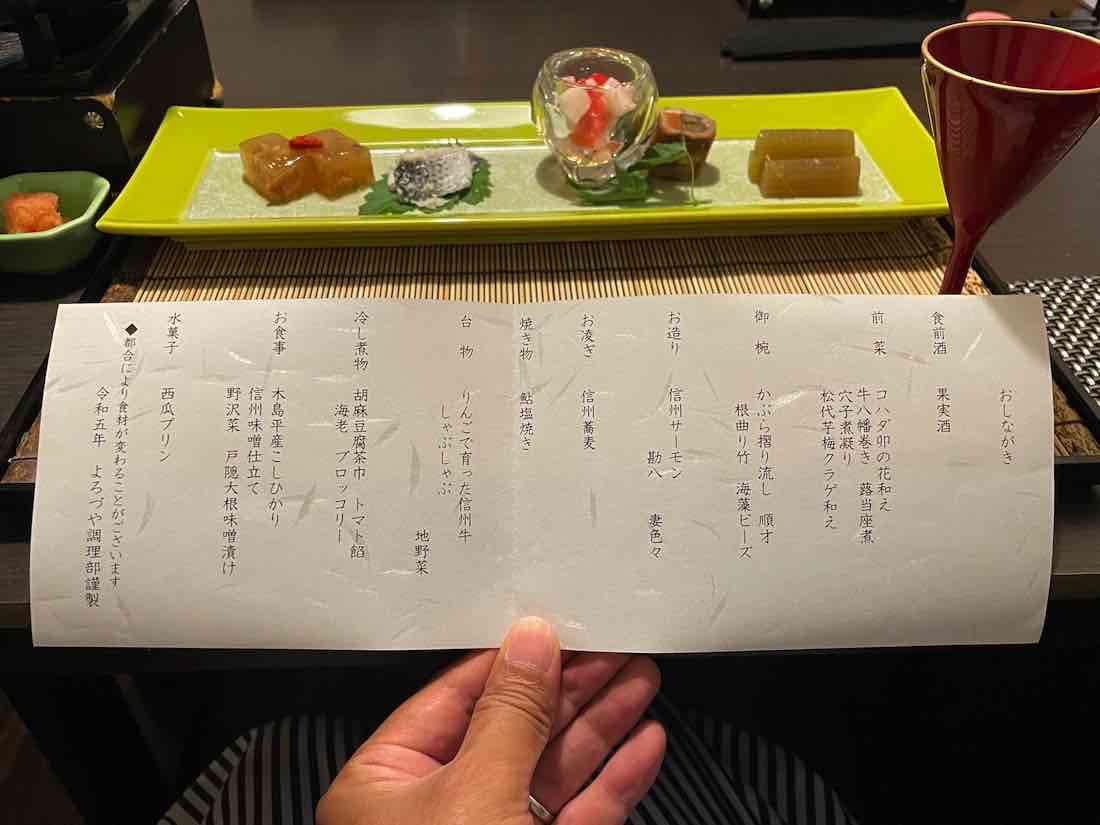 おしながき
食前酒　果実酒
前菜　コハダ卯の花和え
牛八幡巻き　蕗当座煮
穴子煮凝り
松代芋梅クラゲ和え
御椀　かぶら摺り流し　順才
根曲り竹　海藻ビーズ
お造り　信州サーモン
勘八　妻色々
お凌ぎ　信州蕎麦
焼き物　鮎塩焼き
台物　りんごで育った信州牛
しゃぶしゃぶ
地野菜
冷し煮物　胡麻豆腐茶巾　トマト餡
海老　ブロッコリー
お食事　木島平産こしひかり
信州味噌仕立て
野沢菜　戸隠大根味噌漬け
水菓子　西瓜プリン
◆都合により食材が変わることがございます
令和五年　よろづや調理部謹製